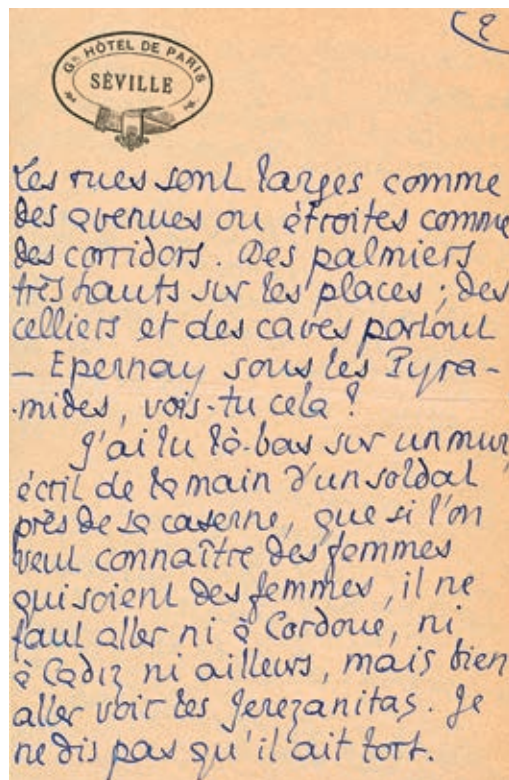 (2
Gᵈ HÔTEL DE PARIS
SÉVILLE
Les rues sont larges comme
des avenues ou étroites comme
des corridors. Des palmiers
très hauts sur les places ; des
celliers et des caves partout
— Epernay sous les Pyra-
-mides, vois-tu cela ?
J'ai lu là-bas sur un mur,
écrit de la main d'un soldat
près de sa caserne, que si l'on
veut connaître des femmes
qui soient des femmes, il ne
faut aller ni à Cordoue, ni
à Cadiz ni ailleurs, mais bien
aller voir les Jerezanitas. Je
ne dis pas qu'il ait tort.